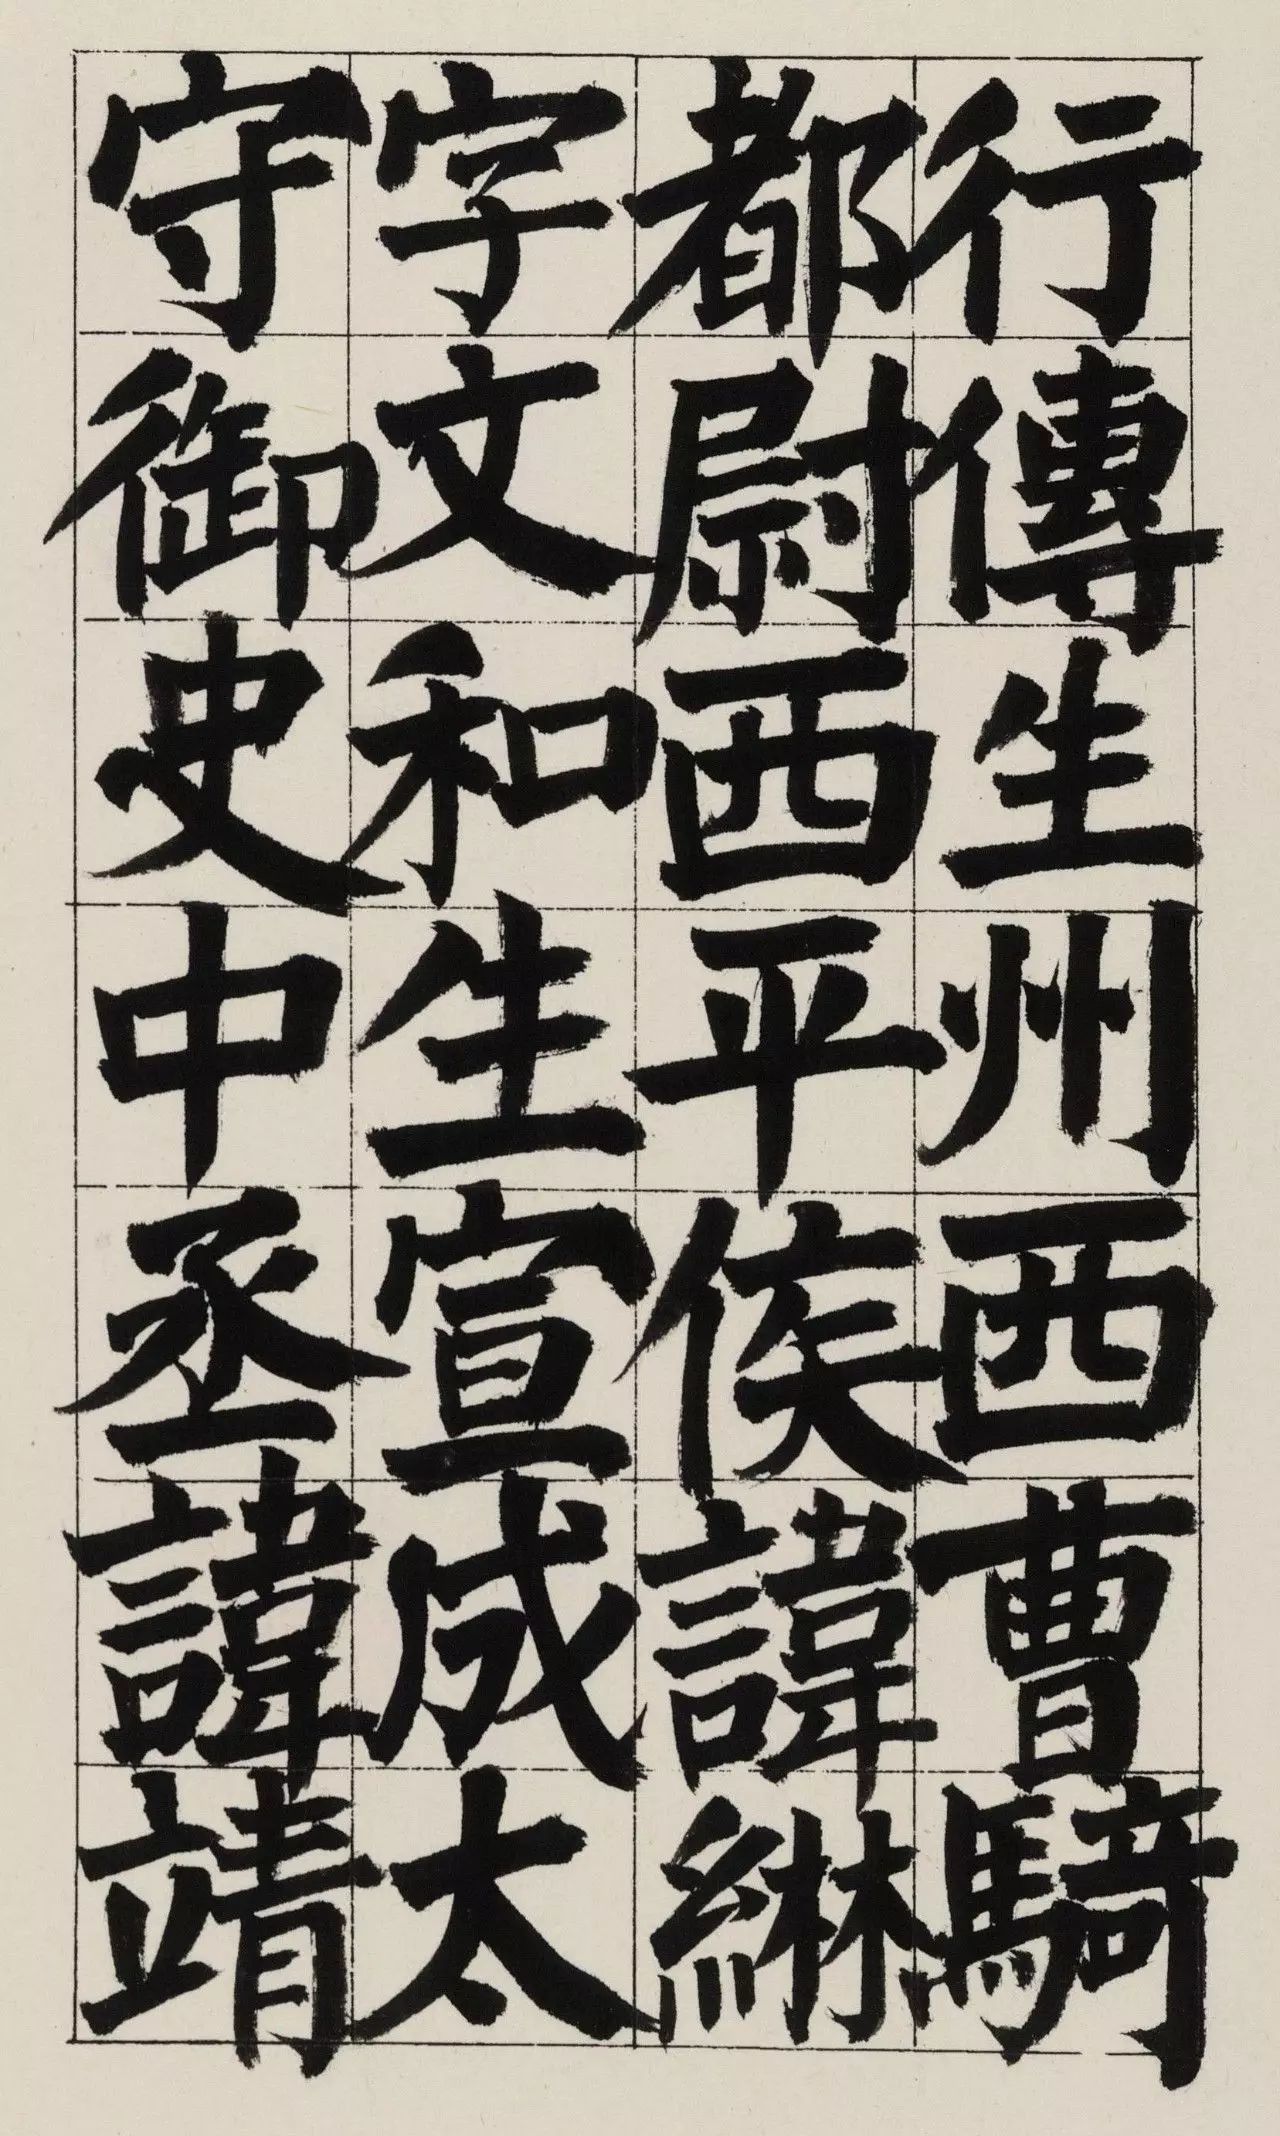 行傳生州西曹騎
都尉西平侯諱綝
字文和生宣成太
守御史中丞諱靖